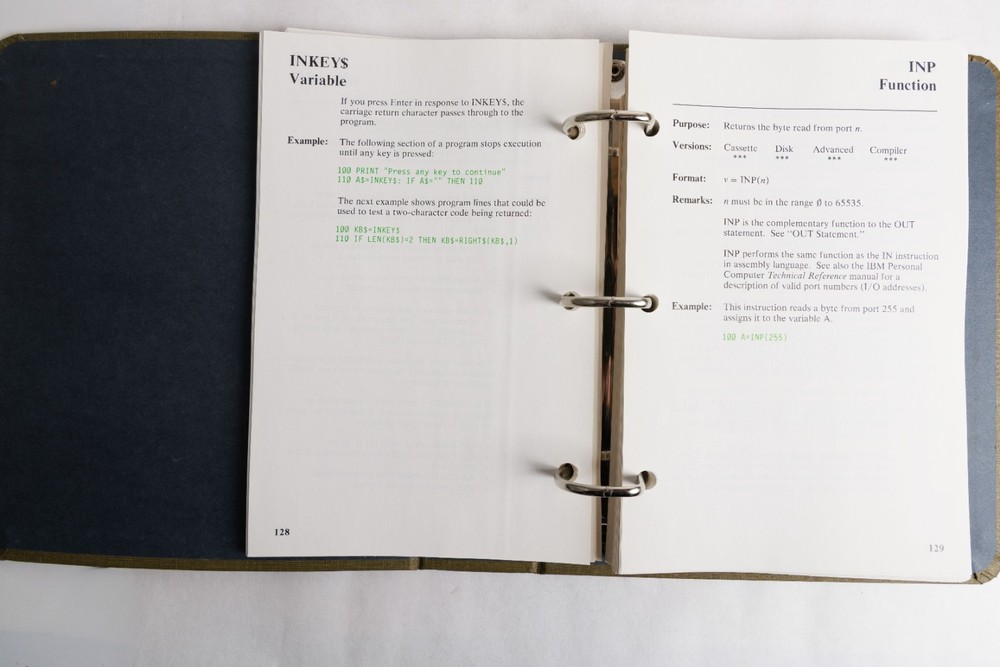 INKEY$
Variable
If you press Enter in response to INKEY$, the
carriage return character passes through to the
program.
Example: The following section of a program stops execution
until any key is pressed:
100 PRINT "Press any key to continue"
110 A$=INKEY$: IF A$="" THEN 110
The next example shows program lines that could be
used to test a two-character code being returned:
100 KB$=INKEY$
110 IF LEN(KB$)=2 THEN KB$=RIGHT$(KB$,1)
128
INP
Function
Purpose: Returns the byte read from port n.
Versions: Cassette Disk Advanced Compiler
*** *** *** ***
Format: v = INP(n)
Remarks: n must be in the range 0 to 65535.
INP is the complementary function to the OUT
statement. See "OUT Statement."
INP performs the same function as the IN instruction
in assembly language. See also the IBM Personal
Computer Technical Reference manual for a
description of valid port numbers (I/O addresses).
Example: This instruction reads a byte from port 255 and
assigns it to the variable A.
100 A=INP(255)
129